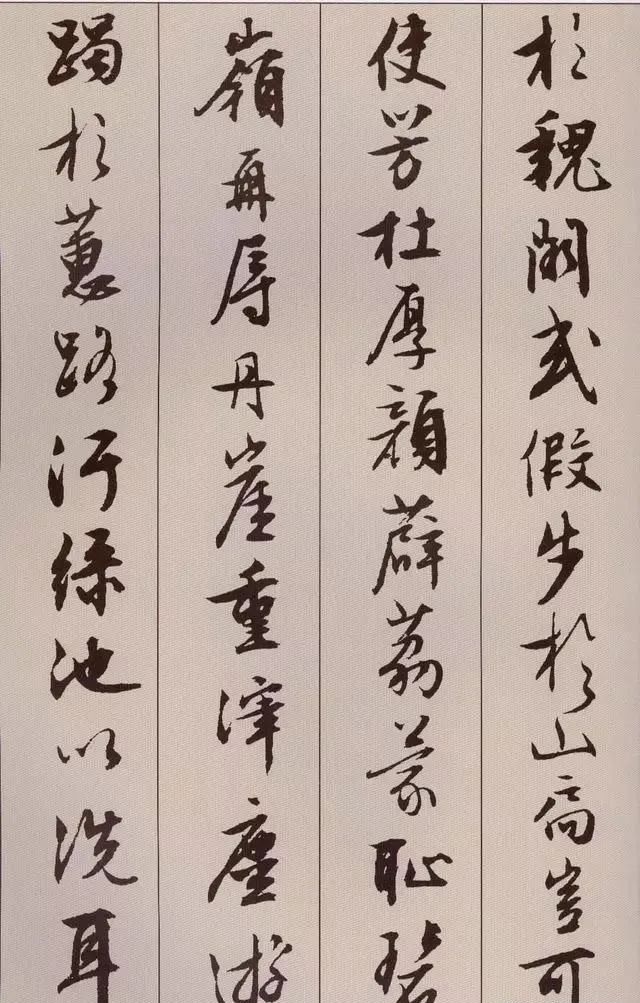 於魏闕或假步於山扃豈可
使芳杜厚顏薜荔蒙恥碧
嶺再辱丹崖重滓塵游
躅於蕙路汙綠池以洗耳